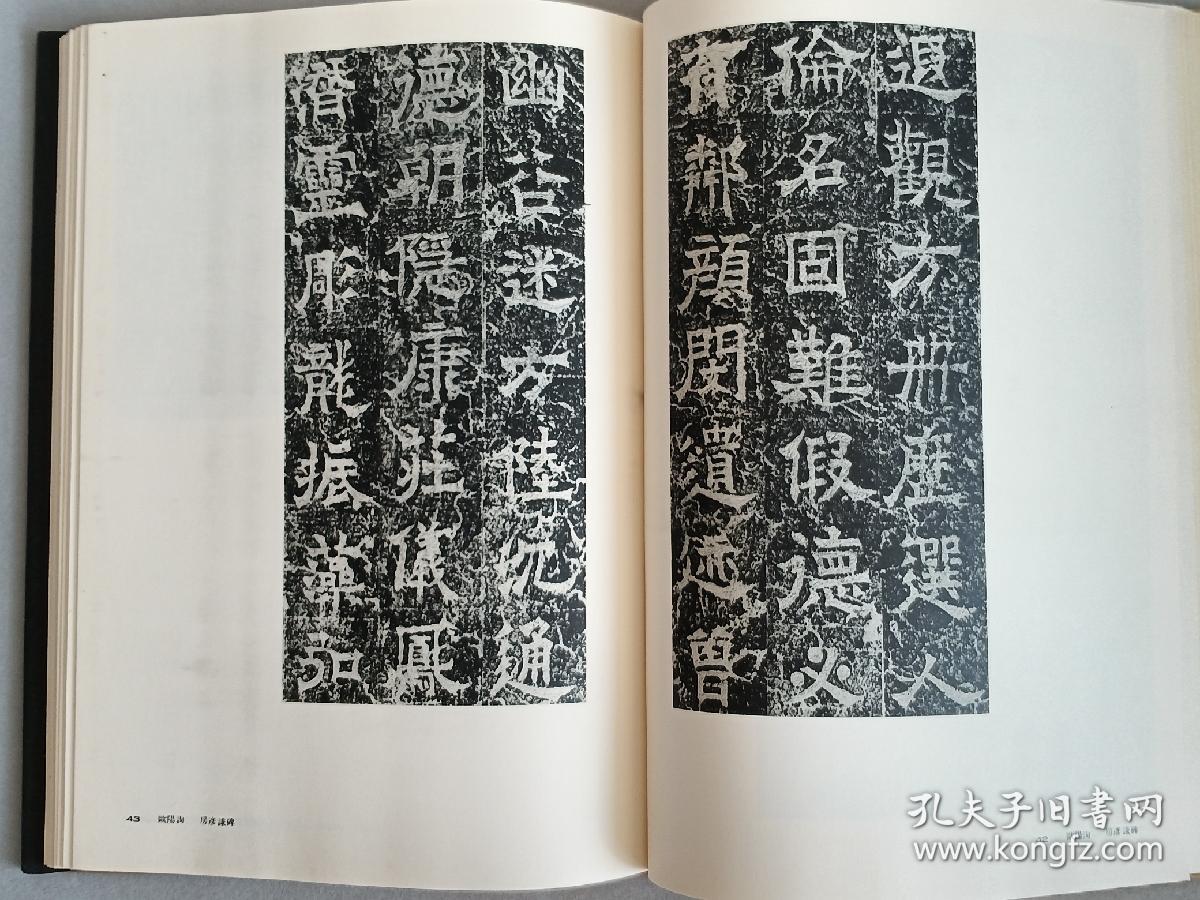 遐觀方冊歷選人
倫名固難假德必
有鄰顏閔遺迹曾
幽迷方陸沈通
德朝隱康莊儀鳳
潛靈彫龍振藻弘
43 歐陽詢 房彥謙碑
42 歐陽詢 房彥謙碑
孔夫子旧书网
www.kongfz.com